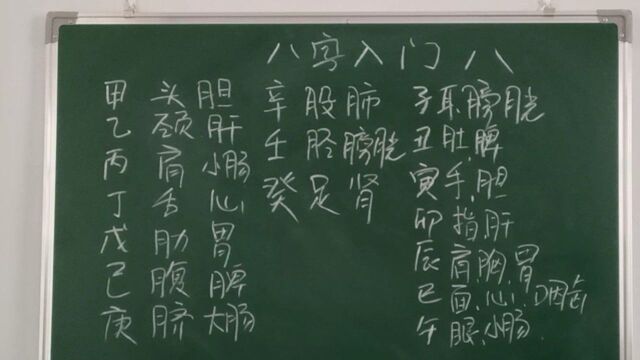 八字入门八
甲 头 胆
乙 颈 肝
丙 肩 小肠
丁 舌 心
戊 肋 胃
己 腹 脾
庚 脐 大肠
辛 股 肺
壬 胫 膀胱
癸 足 肾
子 耳 膀胱
丑 肚.脾
寅 手.胆
卯 指 肝
辰 肩.胸.胃
巳 面.心.咽齿
午 眼.小肠.